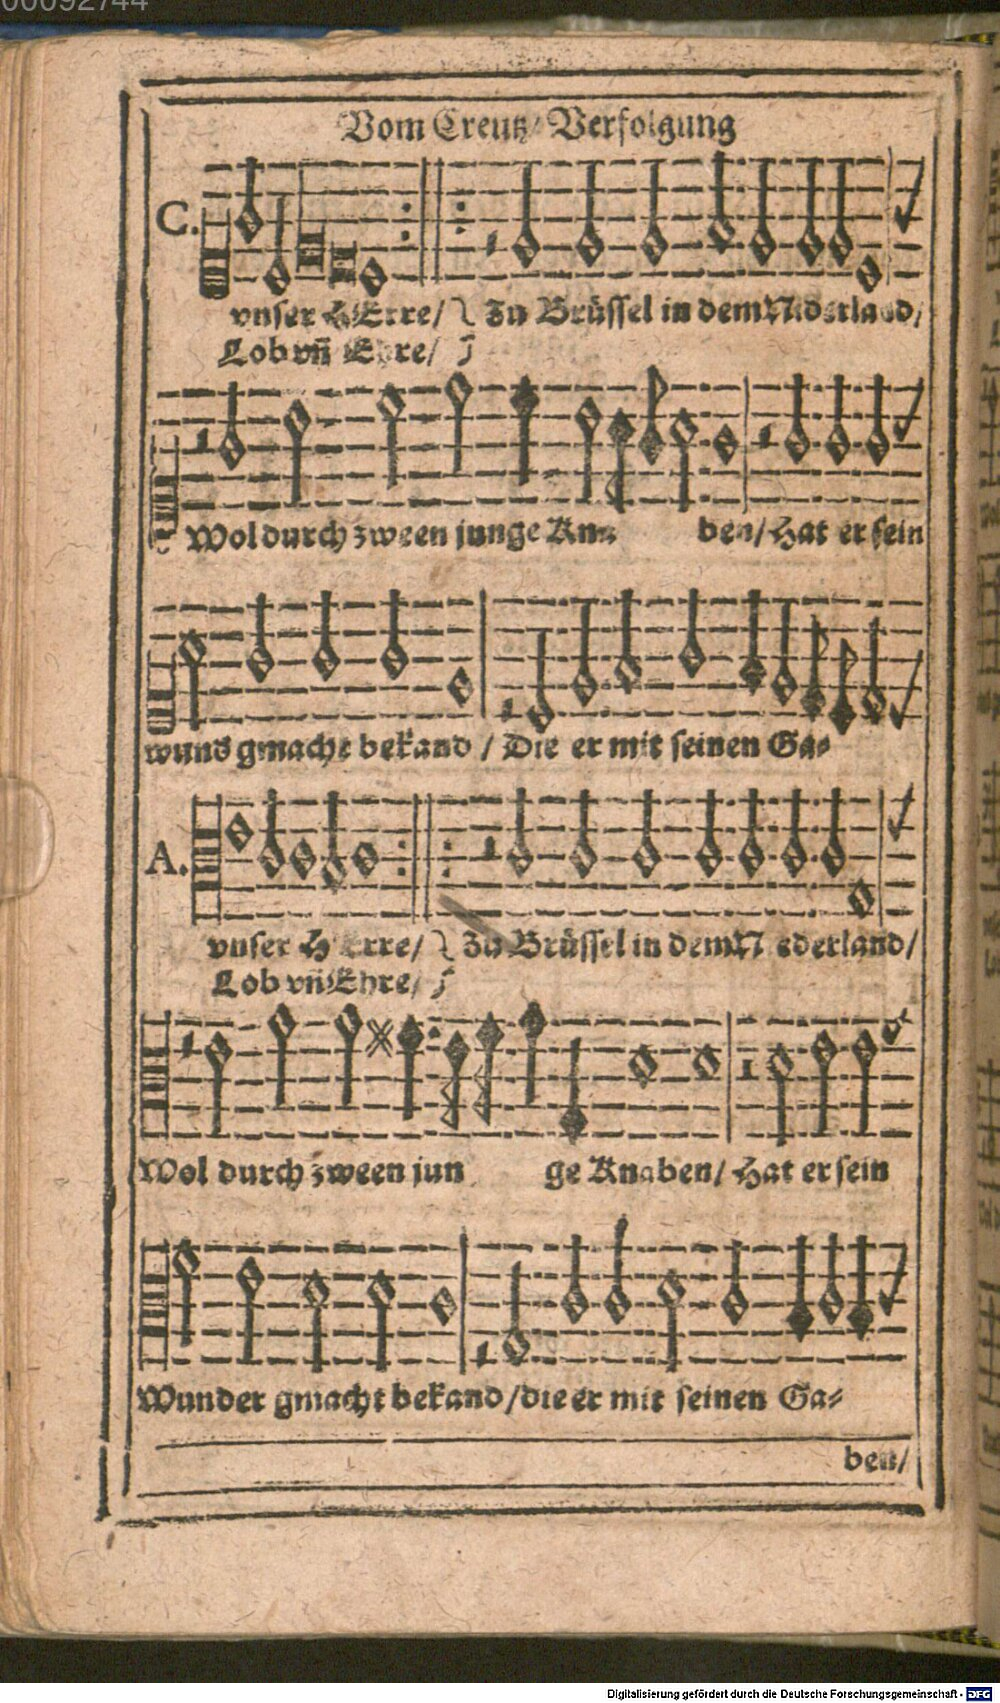 00092744
Vom Creutz/ Verfolgung
C.
vnser HErre/ Zu Brüssel in dem Niderland/
Lob vñ Ehre/
Wol durch zween junge Kna ben/ Hat er sein
wund gmacht bekand / Die er mit seinen Ga⸗
A.
vnser HErre/ Zu Brüssel in dem Nederland/
Lob vñ Ehre/
Wol durch zween jun ge Knaben/ Hat er sein
Wunder gmacht bekand /die er mit seinen Ga⸗
ben/
Digitalisierung gefördert durch die Deutsche Forschungsgemeinschaft - DFG